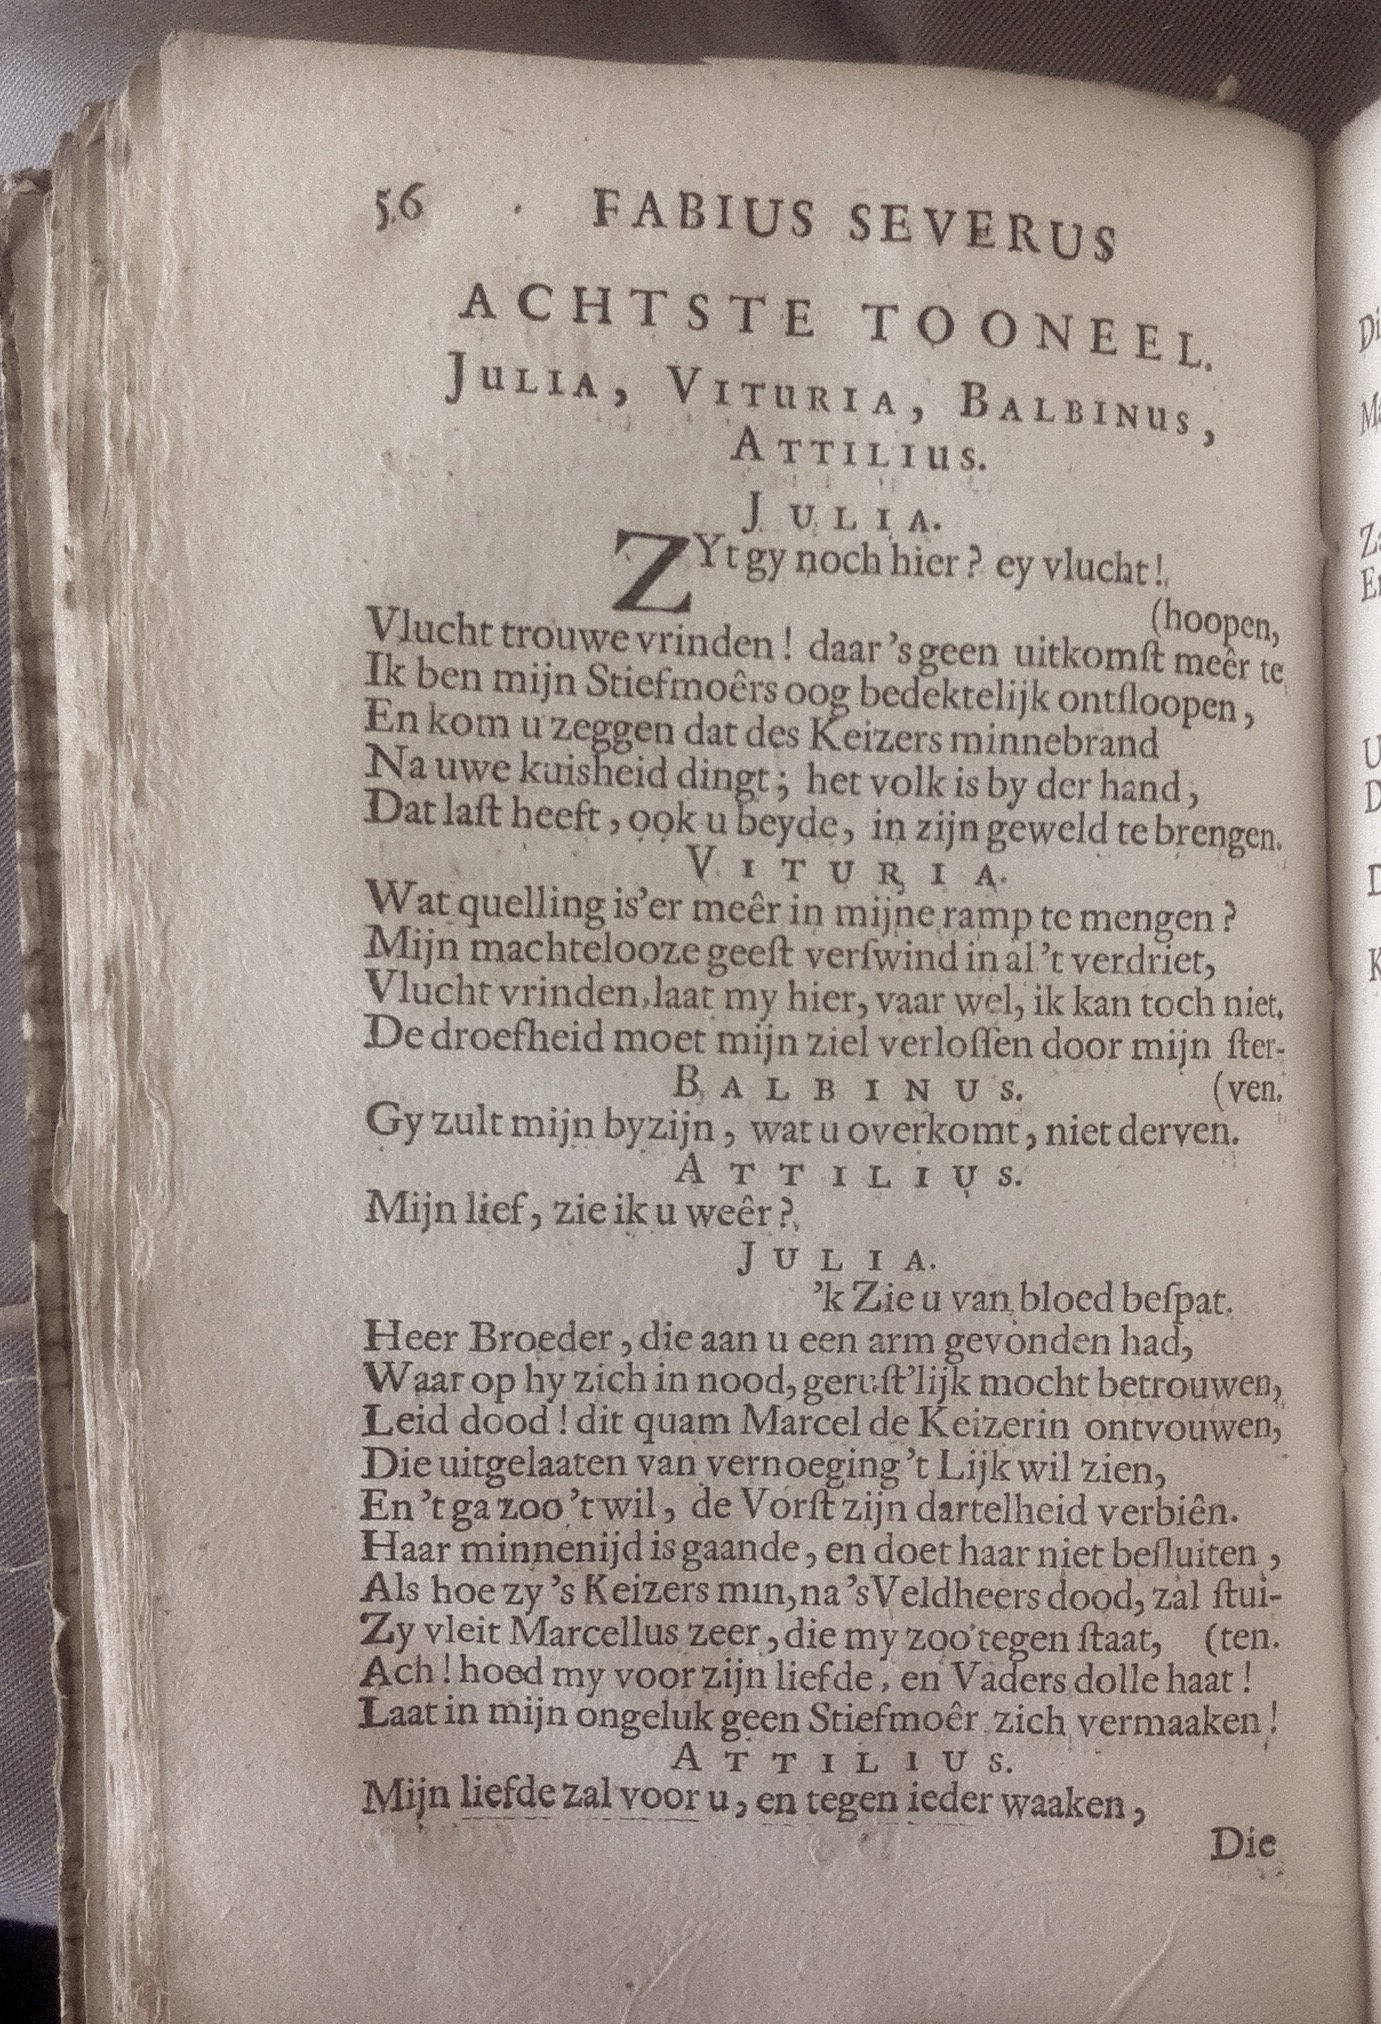 56 FABIUS SEVERUS
ACHTSTE TOONEEL.
JULIA, VITURIA, BALBINUS,
ATTILIUS.
JULIA.
ZYt gy noch hier? ey vlucht!
(hoopen,
Vlucht trouwe vrinden! daar 's geen uitkomſt meêr te
Ik ben mijn Stiefmoêrs oog bedektelijk ontſloopen,
En kom u zeggen dat des Keizers minnebrand
Na uwe kuisheid dingt; het volk is by der hand,
Dat laſt heeft, ook u beyde, in zijn geweld te brengen.
VITURIA.
Wat quelling is'er meêr in mijne ramp te mengen?
Mijn machtelooze geeſt verſwind in al 't verdriet,
Vlucht vrinden, laat my hier, vaar wel, ik kan toch niet.
De droefheid moet mijn ziel verloſſen door mijn ſter-
BALBINUS. (ven.
Gy zult mijn byzijn, wat u overkomt, niet derven.
ATTILIUS.
Mijn lief, zie ik u weêr?
JULIA.
'k Zie u van bloed beſpat.
Heer Broeder, die aan u een arm gevonden had,
Waar op hy zich in nood, geruſt'lijk mocht betrouwen,
Leid dood! dit quam Marcel de Keizerin ontvouwen,
Die uitgelaaten van vernoeging 't Lijk wil zien,
En 't ga zoo 't wil, de Vorſt zijn dartelheid verbiên.
Haar minnenijd is gaande, en doet haar niet beſluiten,
Als hoe zy 's Keizers min, na 's Veldheers dood, zal ſtui-
Zy vleit Marcellus zeer, die my zoo tegen ſtaat, (ten.
Ach! hoed my voor zijn liefde, en Vaders dolle haat!
Laat in mijn ongeluk geen Stiefmoêr zich vermaaken!
ATTILIUS.
Mijn liefde zal voor u, en tegen ieder waaken,
Die